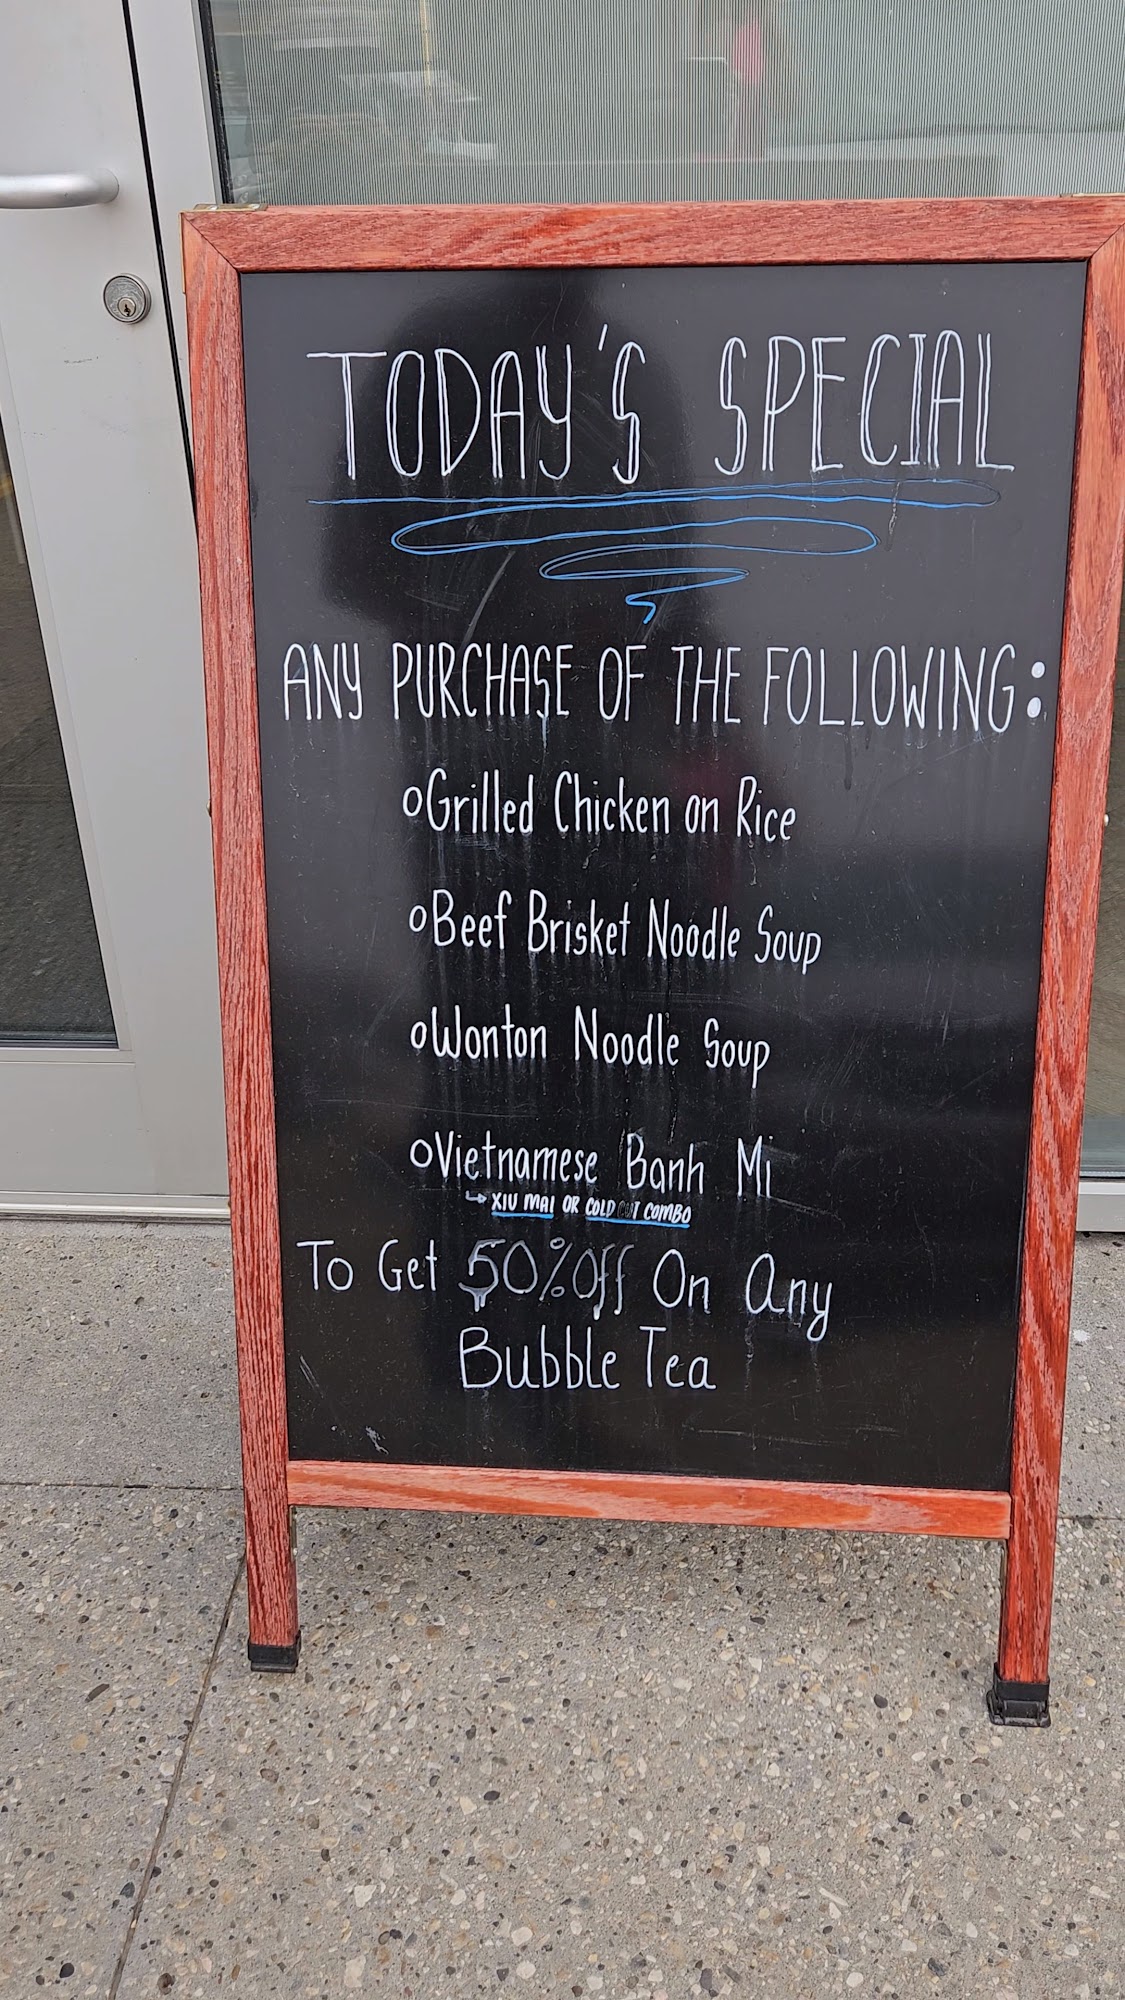 TODAY'S SPECIAL
ANY PURCHASE OF THE FOLLOWING:
o Grilled Chicken on Rice
o Beef Brisket Noodle Soup
o Wonton Noodle Soup
o Vietnamese Banh Mi
↳ XIU MAI OR COLD CUT COMBO
To Get 50% Off On Any
Bubble Tea